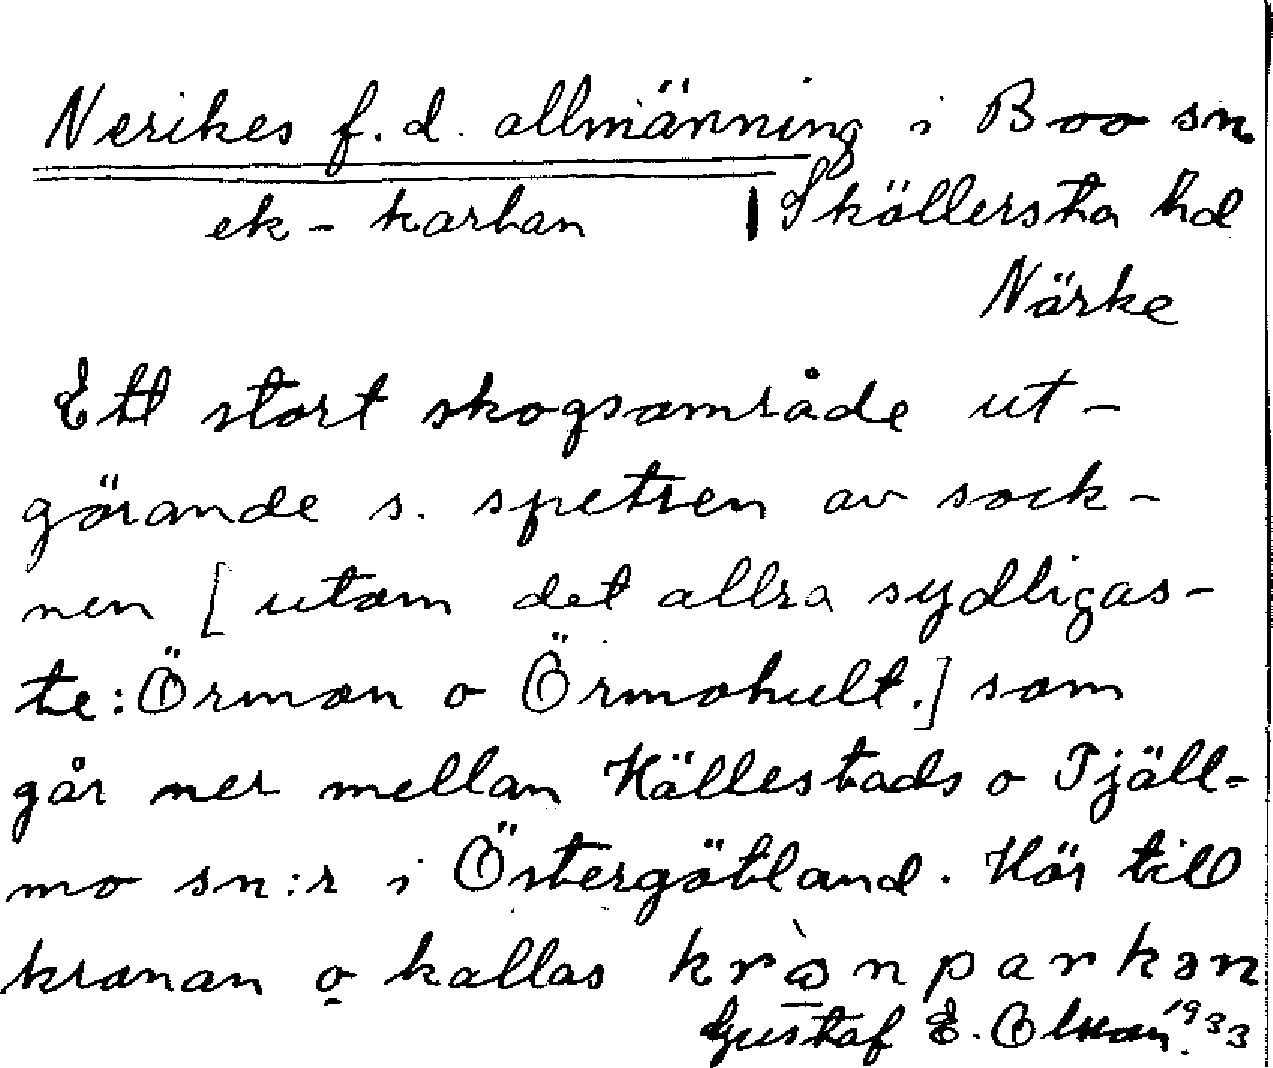 Nerikes f.d. allmänning i Boo sn
ek-kartan | Sköllersta hd
Närke
Ett stort skogsområde ut-
görande s. spetsen av sock-
nen [utom det allra sydligas-
te: Örmon o Örmohult.] som
går ner mellan Hällestads o Tjäll-
mo sn:r i Östergötland. Hör till
kronan o kallas
Gustaf E. Olsson 1933